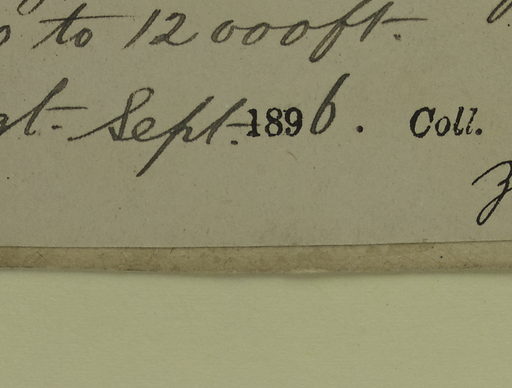 to 12000ft.
Sept. 1896. Coll.